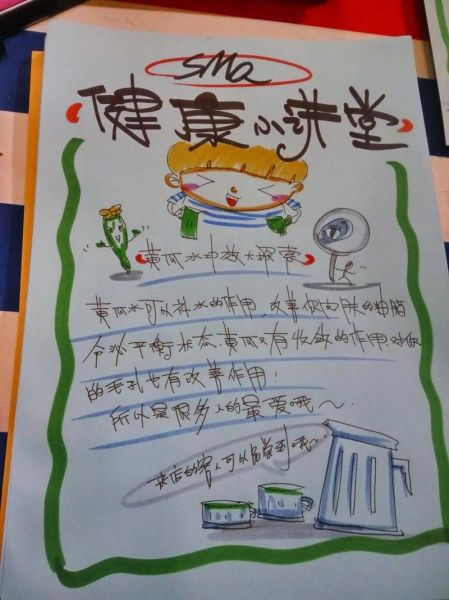 SMa
健康小讲堂
黄瓜水中放大探索
黄瓜水可以补水的作用,改善你皮肤的油脂
分泌平衡状态.黄瓜又有收敛的作用.对你
的毛孔也有改善作用!
所以是很多人的最爱哦~
来店的客人可以品尝到哦~